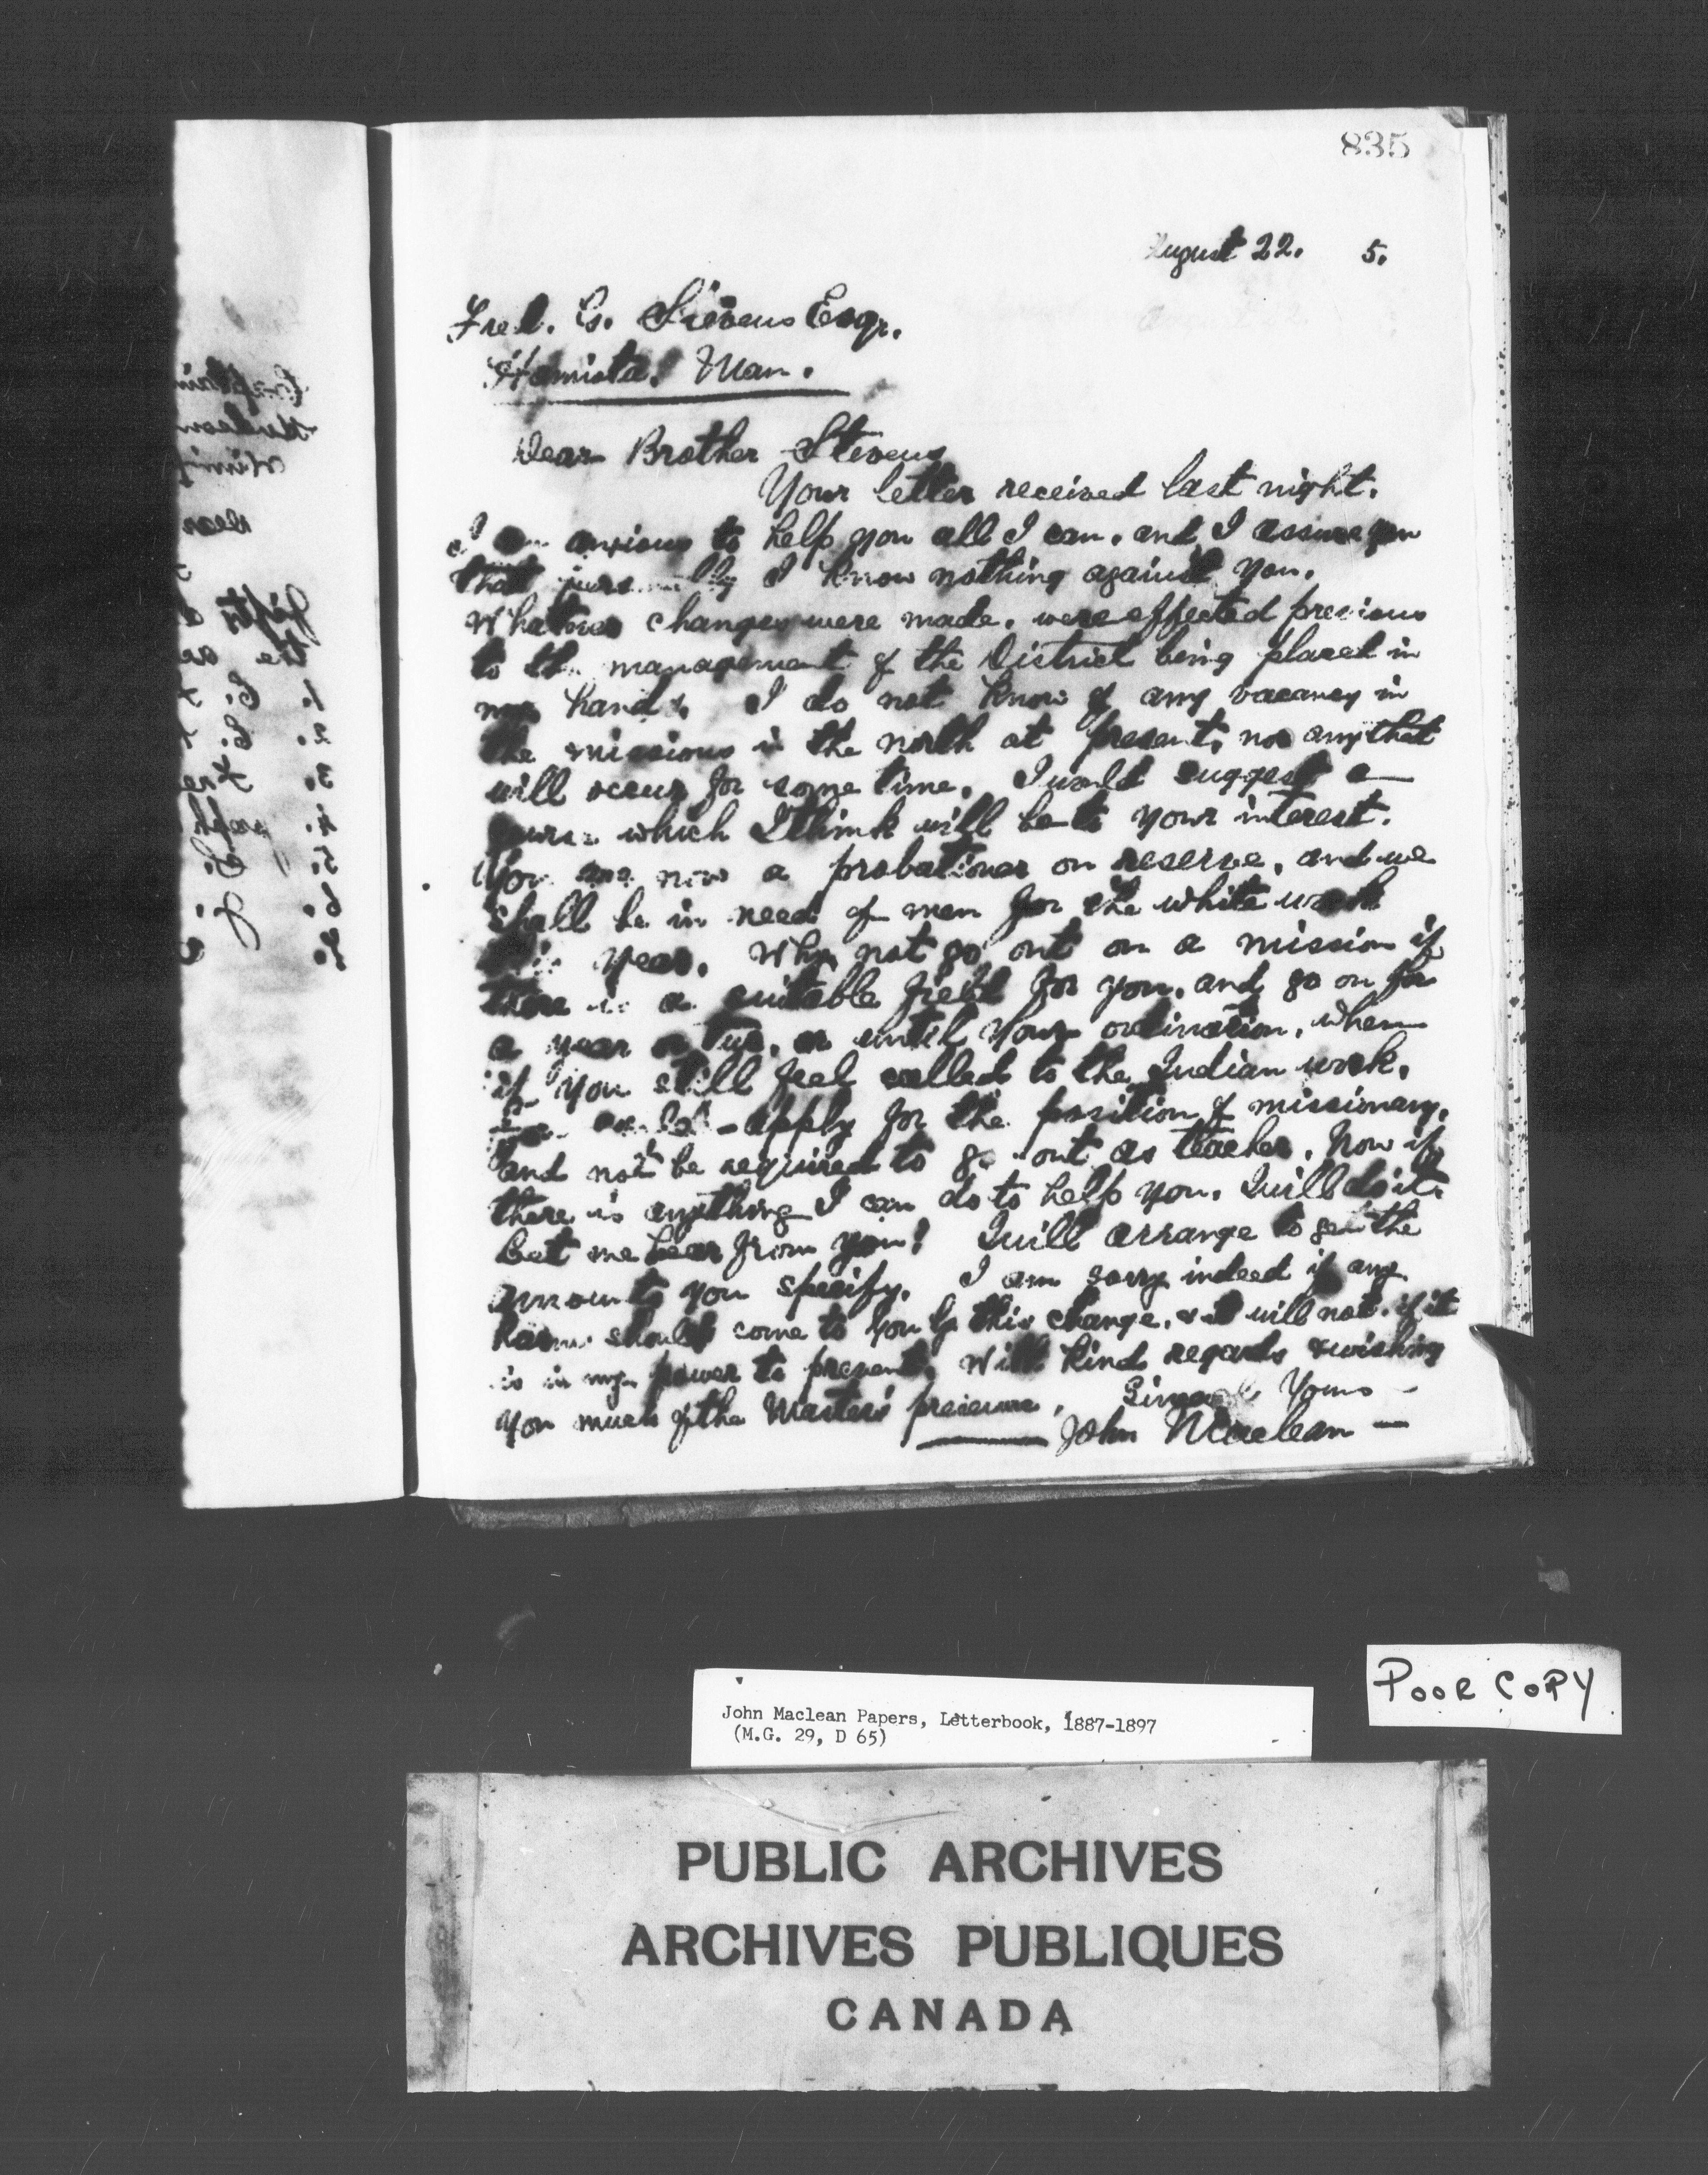 835
August 22. 5.
Fred. G. Stevens Esqr.
Hamiota. Man.
Dear Brother Stevens
Your letter received last night.
I am anxious to help you all I can, and I assure you
that personally I know nothing against you.
Whatever changes were made, were effected previous
to the management of the District being placed in
my hands. I do not know of any vacancy in
the missions in the north at present, nor any that
will occur for some time. I would suggest a
course which I think will be to your interest.
You are now a probationer on reserve, and we
shall be in need of men for the white work
this year. Why not go out on a mission if
there is a suitable field for you, and go on for
a year or two, or until your ordination, when
if you still feel called to the Indian work,
you could apply for the position of missionary,
and not be required to go out as teacher. Now if
there is anything I can do to help you, I will do it.
Let me hear from you! I will arrange to send the
amounts you specify. I am sorry indeed if any
harm should come to you by this change, & it will not, if it
is in my power to prevent. With kind regards & wishing
you much of the Master's presence, Sincerely Yours
John Maclean
POOR COPY
John Maclean Papers, Letterbook, 1887-1897
(M.G. 29, D 65)
PUBLIC ARCHIVES
ARCHIVES PUBLIQUES
CANADA